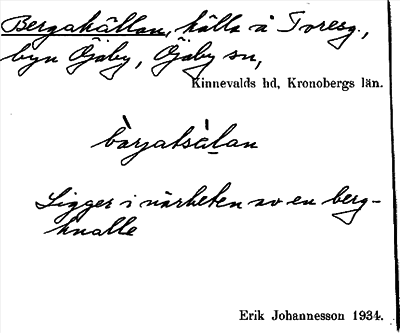 Bergakällan, källa å Toresg.,
byn Öjaby, Öjaby sn,
Kinnevalds hd, Kronobergs län.
bärjatsälan
Ligger i närheten av en berg-
knalle
Erik Johannesson 1934.